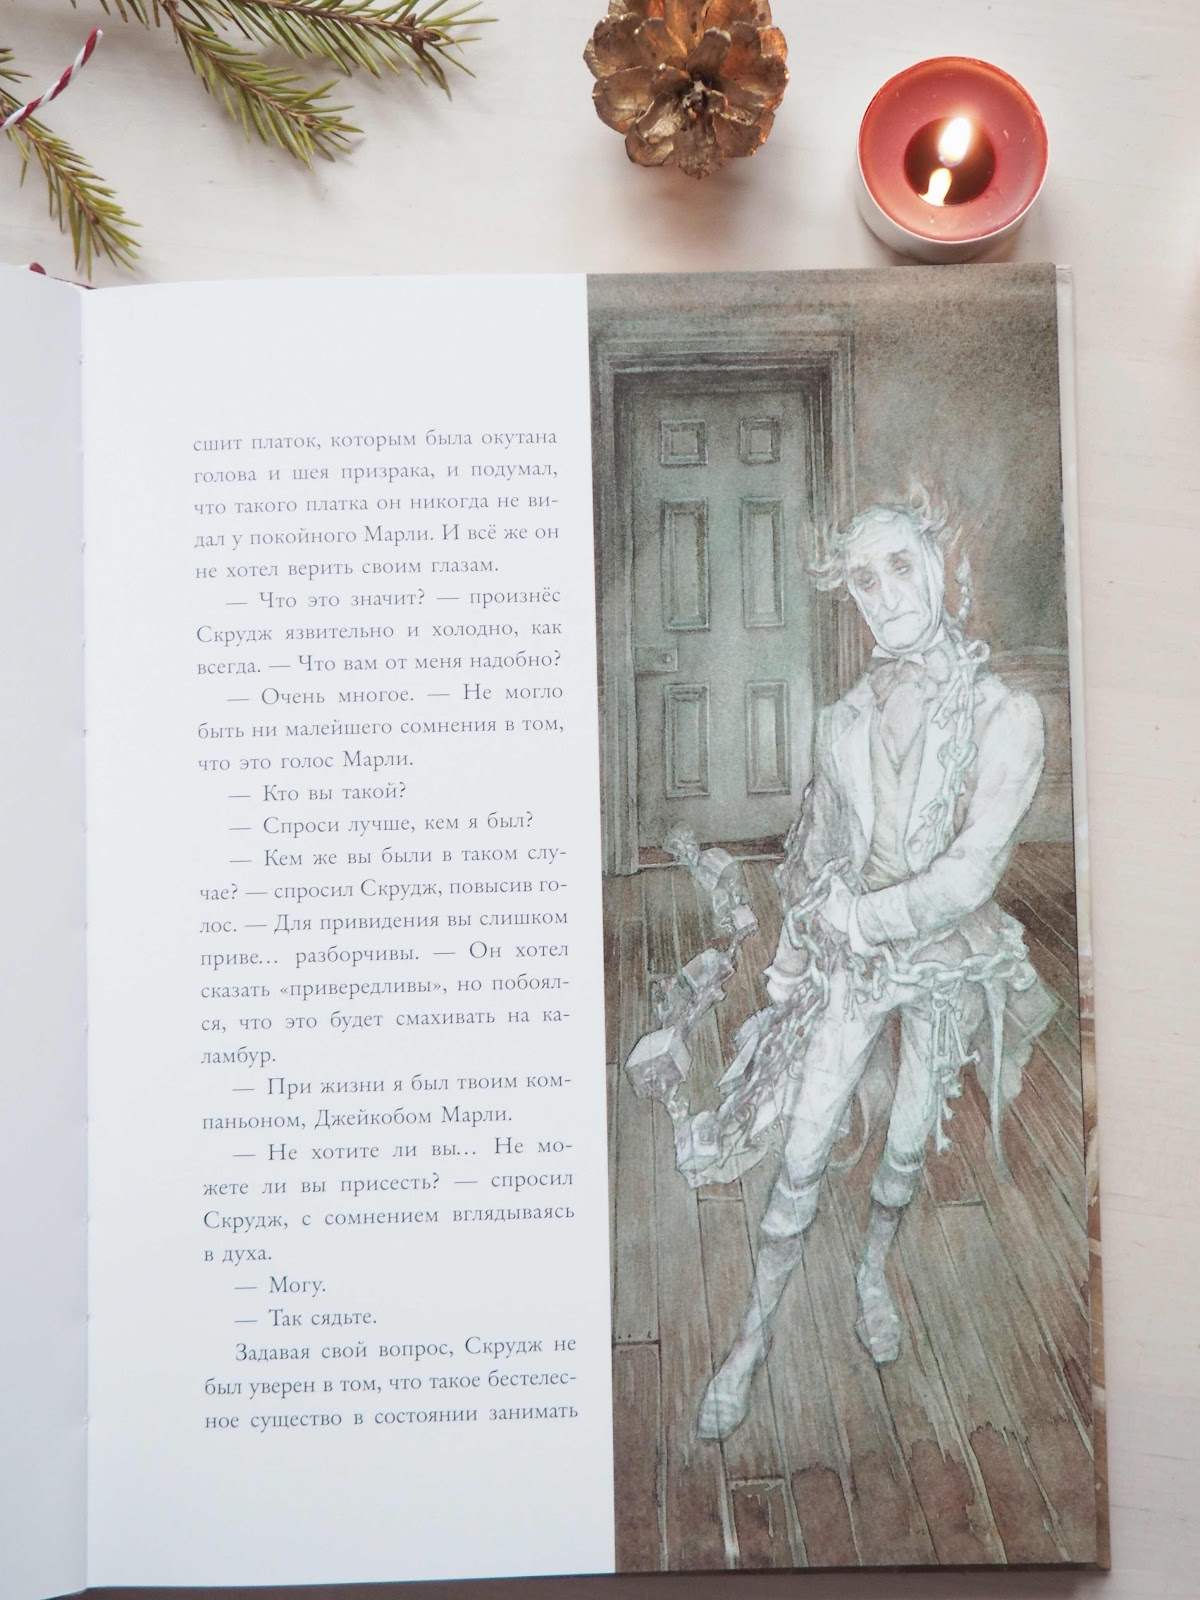 сшит платок, которым была окутана
голова и шея призрака, и подумал,
что такого платка он никогда не ви-
дал у покойного Марли. И всё же он
не хотел верить своим глазам.
— Что это значит? — произнёс
Скрудж язвительно и холодно, как
всегда. — Что вам от меня надобно?
— Очень многое. — Не могло
быть ни малейшего сомнения в том,
что это голос Марли.
— Кто вы такой?
— Спроси лучше, кем я был?
— Кем же вы были в таком слу-
чае? — спросил Скрудж, повысив го-
лос. — Для привидения вы слишком
приве... разборчивы. — Он хотел
сказать «привередливы», но побоял-
ся, что это будет смахивать на ка-
ламбур.
— При жизни я был твоим ком-
паньоном, Джейкобом Марли.
— Не хотите ли вы... Не мо-
жете ли вы присесть? — спросил
Скрудж, с сомнением вглядываясь
в духа.
— Могу.
— Так сядьте.
Задавая свой вопрос, Скрудж не
был уверен в том, что такое бестелес-
ное существо в состоянии занимать